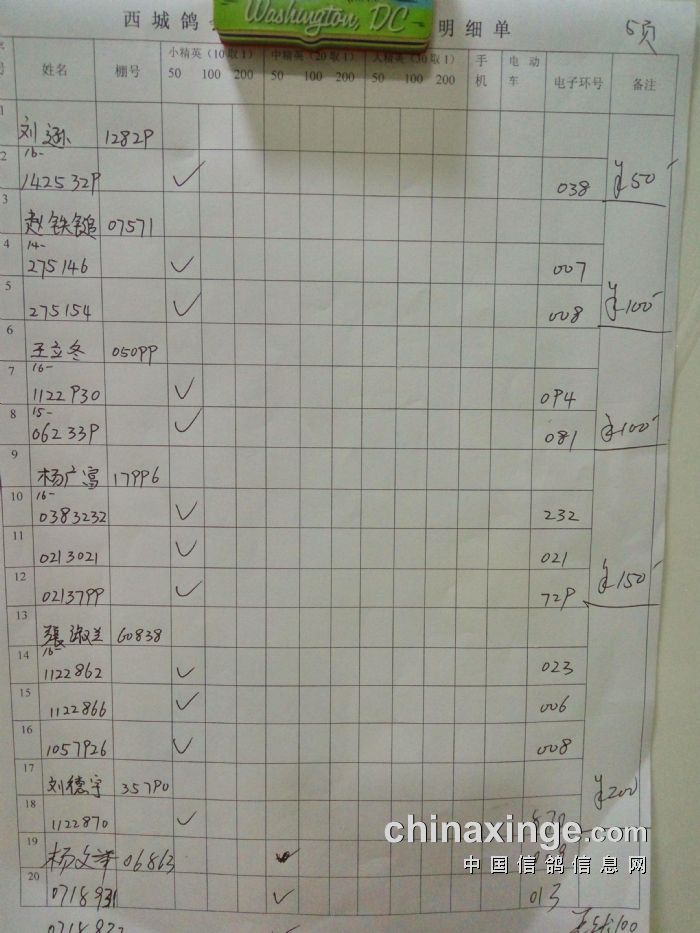 Washington, DC
西城鸽 明细单 5页
号 姓名 棚号 小精英（10取1） 中精英（20取1） 大精英（30取1） 手机 电动车 电子环号 备注
50 100 200 50 100 200 50 100 200
1 刘 12829
2 16- 1425329 ✓ 038 ¥50
3 赵铁 07571
4 14- 275146 ✓ 007
5 275154 ✓ 008 ¥100
6 王立冬 05099
7 16- 1122930 ✓ 094
8 15- 062339 ✓ 081 ¥100
9 杨广富 17996
10 16- 0383232 ✓ 232
11 0213021 ✓ 021
12 0213799 ✓ 729 ¥150
13 張淑兰 60838
14 16- 1122862 ✓ 023
15 1122866 ✓ 006
16 1057926 ✓ 008
17 刘德宇 35790 ¥200
18 1122870 ✓
19 杨文举 06863 ✓
20 0718931 ✓ 013
chinaxinge.com
中国信鸽信息网